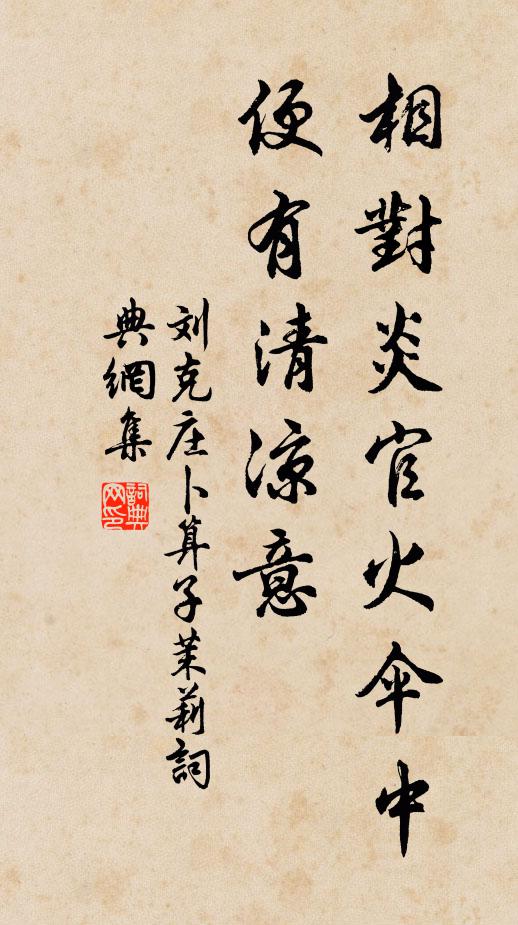 相對炎官火伞中
便有清凉意
刘克庄卜算子茉莉詞
典網集
詞典
网印